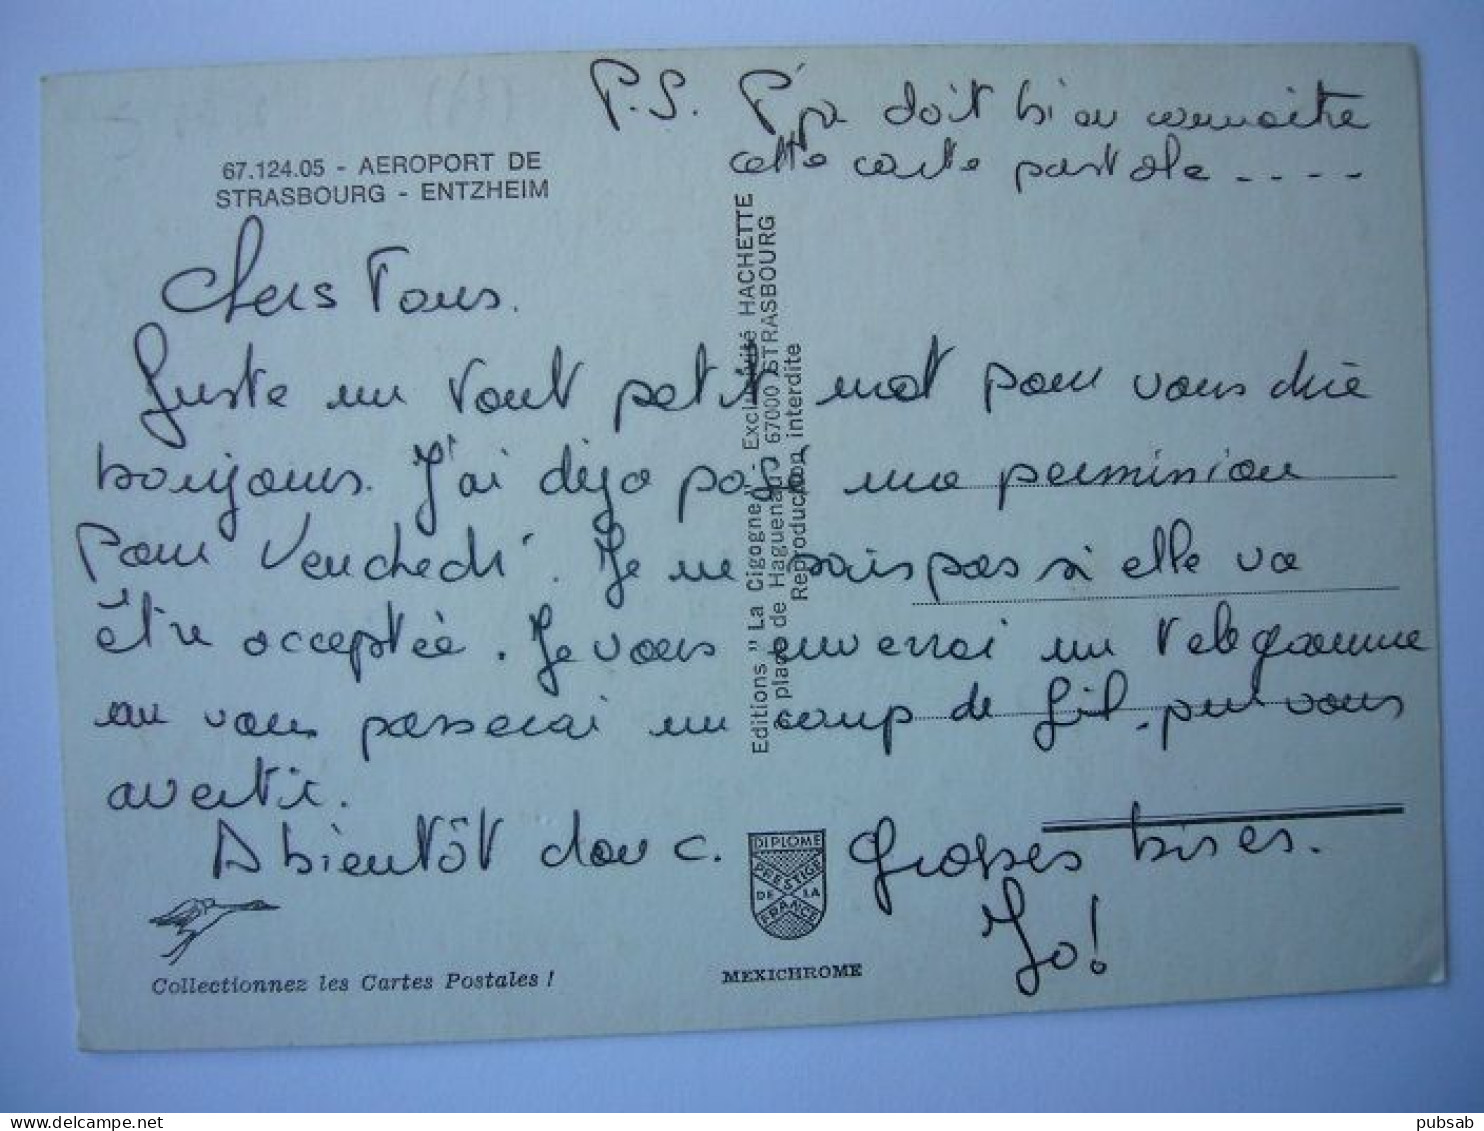 P.S. P'pa doit bien connaître
cette carte postale ----
67.124.05 - AEROPORT DE
STRASBOURG - ENTZHEIM
Chers Tous.
Juste un tout petit mot pour vous dire
bonjours. J'ai déja posé une permission
pour Vendredi. Je ne sais pas si elle va
être acceptée. Je vous enverrai un télégramme
ou vous passerai un coup de fil. pour vous
avertir.
A bientôt donc. Grosses bises.
Jo!
Editions "La Cigogne" - Exclusivité HACHETTE
place de Haguenau - 67000 STRASBOURG
Reproduction interdite
DIPLOME
PRESTIGE
DE LA
FRANCE
Collectionnez les Cartes Postales !
MEXICHROME
pubsab